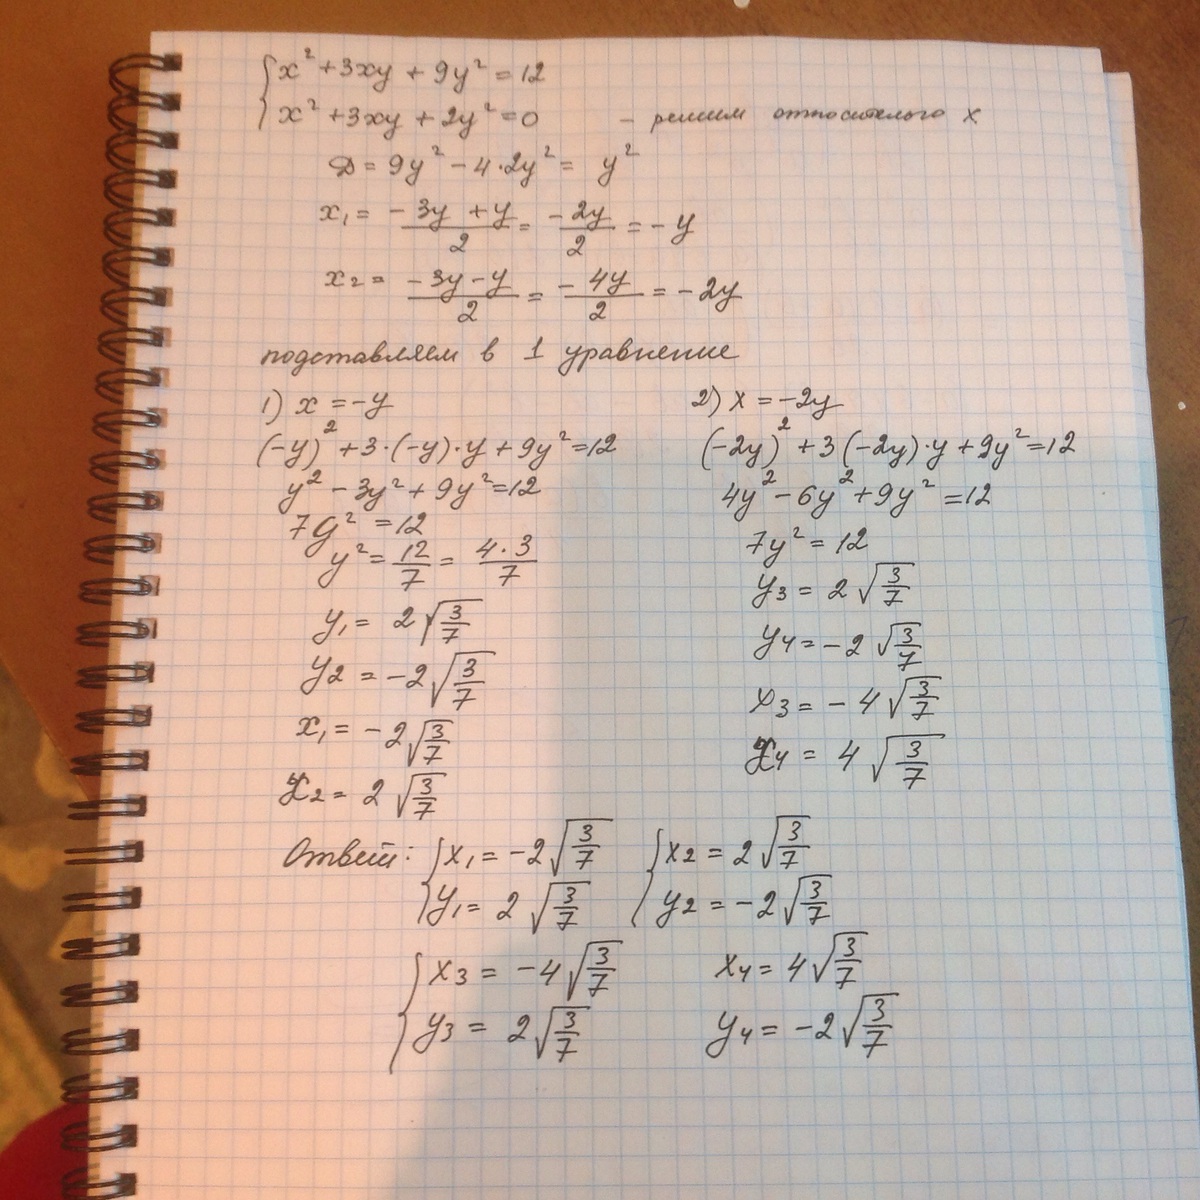 { x² + 3xy + 9y² = 12
x² + 3xy + 2y² = 0 - решим относительно x
D = 9y² - 4·2y² = y²
x₁ = (-3y + y)/2 = -2y/2 = -y
x₂ = (-3y - y)/2 = -4y/2 = -2y
подставляем в 1 уравнение
1) x = -y
(-y)² + 3·(-y)·y + 9y² = 12
y² - 3y² + 9y² = 12
7y² = 12
y² = 12/7 = 4·3/7
y₁ = 2√(3/7)
y₂ = -2√(3/7)
x₁ = -2√(3/7)
x₂ = 2√(3/7)
2) x = -2y
(-2y)² + 3(-2y)·y + 9y² = 12
4y² - 6y² + 9y² = 12
7y² = 12
y₃ = 2√(3/7)
y₄ = -2√(3/7)
x₃ = -4√(3/7)
x₄ = 4√(3/7)
Ответ: { x₁ = -2√(3/7) { x₂ = 2√(3/7)
y₁ = 2√(3/7) y₂ = -2√(3/7)
{ x₃ = -4√(3/7) x₄ = 4√(3/7)
y₃ = 2√(3/7) y₄ = -2√(3/7)